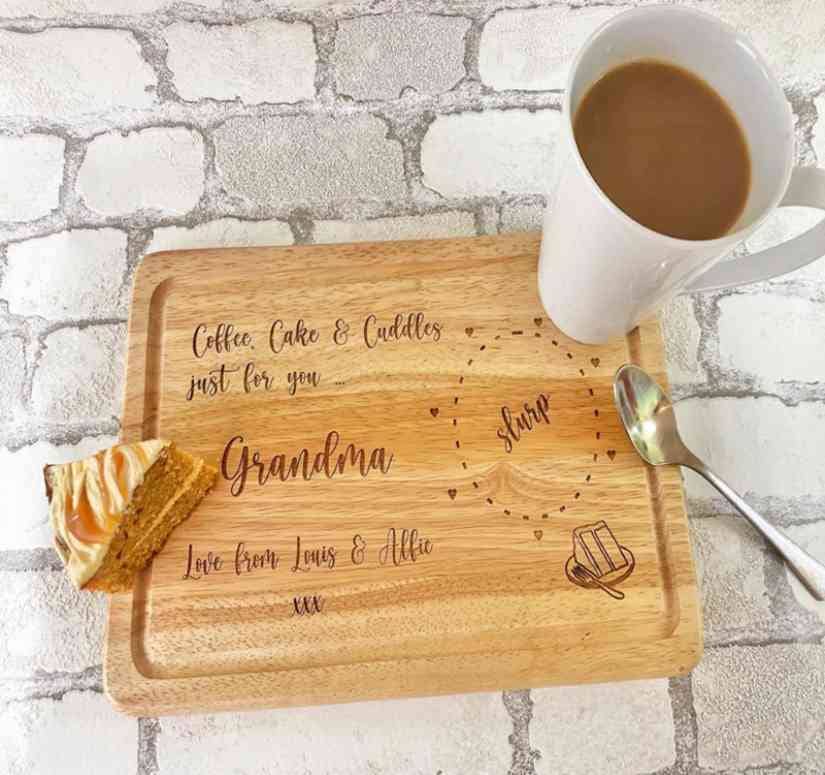 Coffee, Cake & Cuddles
just for you ...
Grandma
slurp
Love from Louis & Alfie
xxx